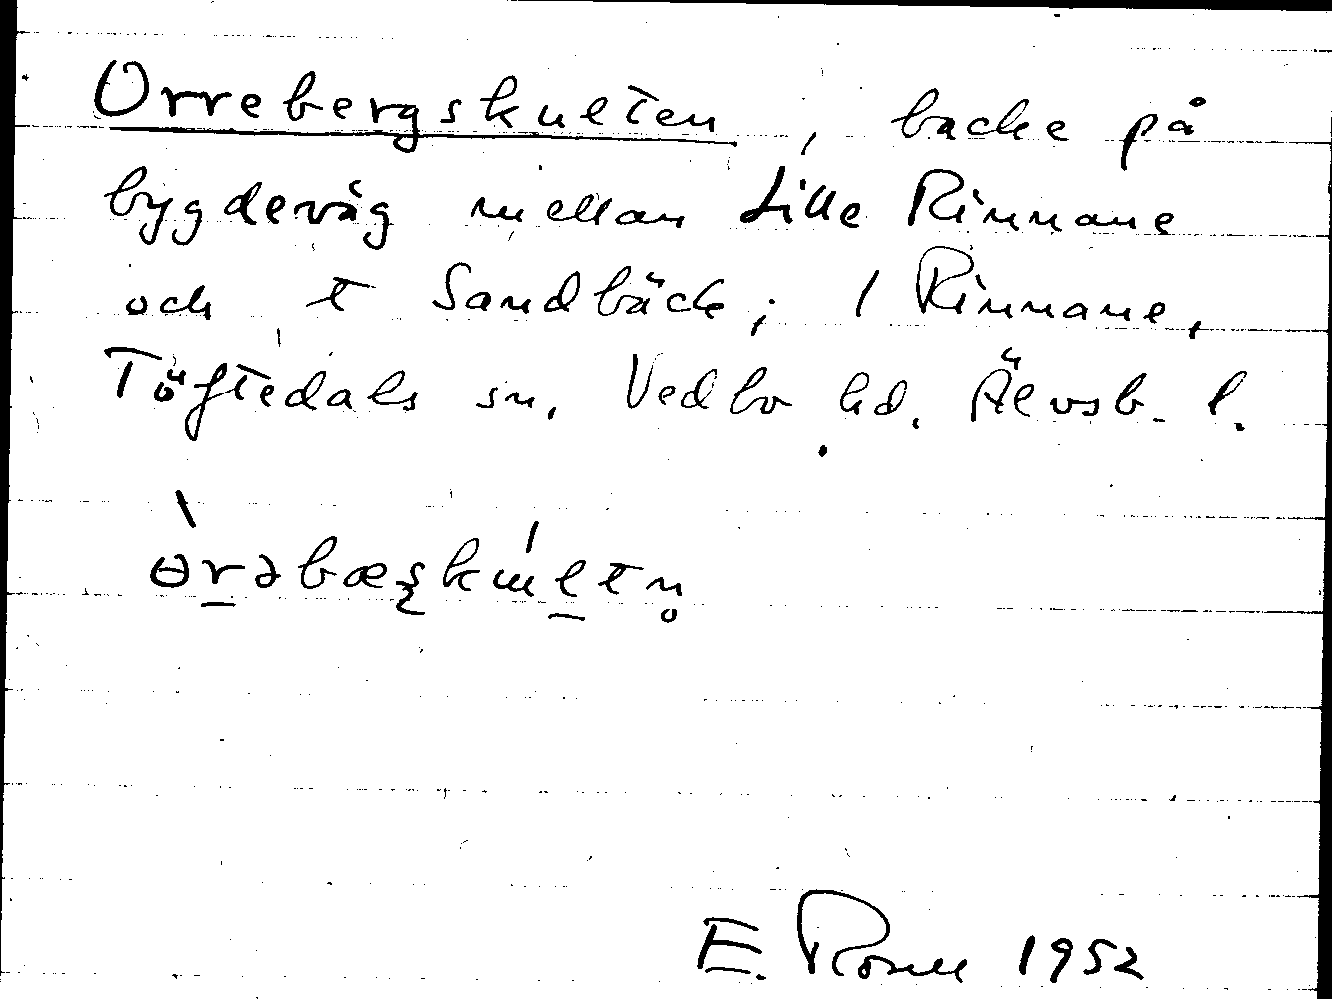 Orrebergskulten, backe på
bygdeväg mellan Lille Rinnane
och t Sandbäck; / Rinnane,
Töftedals sn. Vedbo hd. Älvsb. l.
ɵrəbæʂkɯltn̥
E. 1952